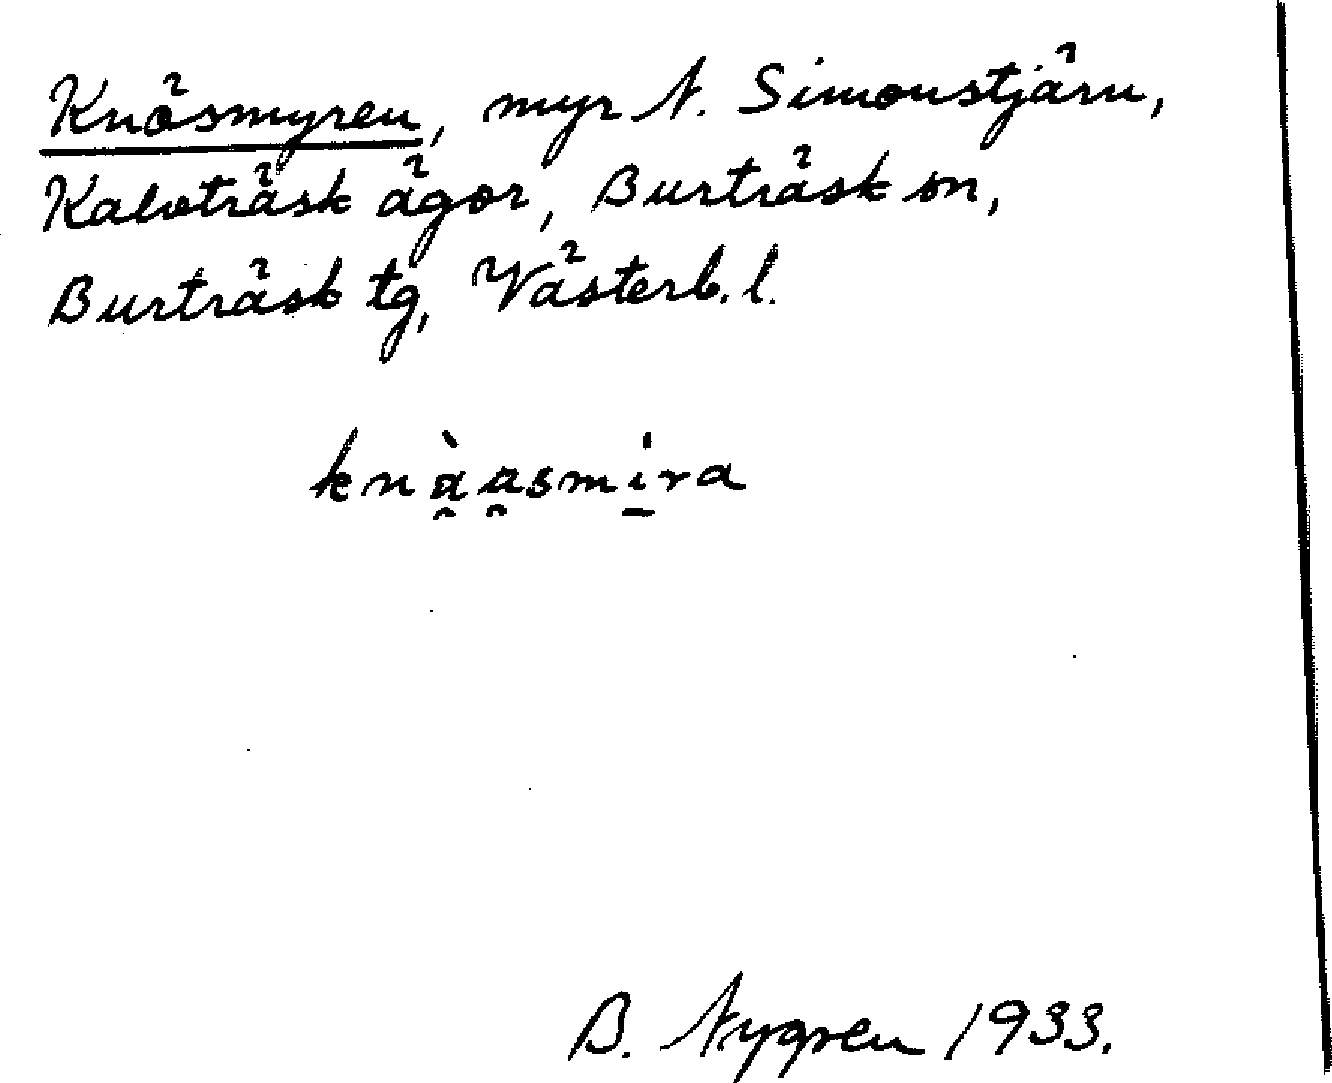 Knösmyren, myr N. Simonstjärn,
Kalvträsk ägor, Burträsk sn,
Burträsk tg, Västerb. l.
knà̯a̯smi̠ra
B. Nygren 1933.